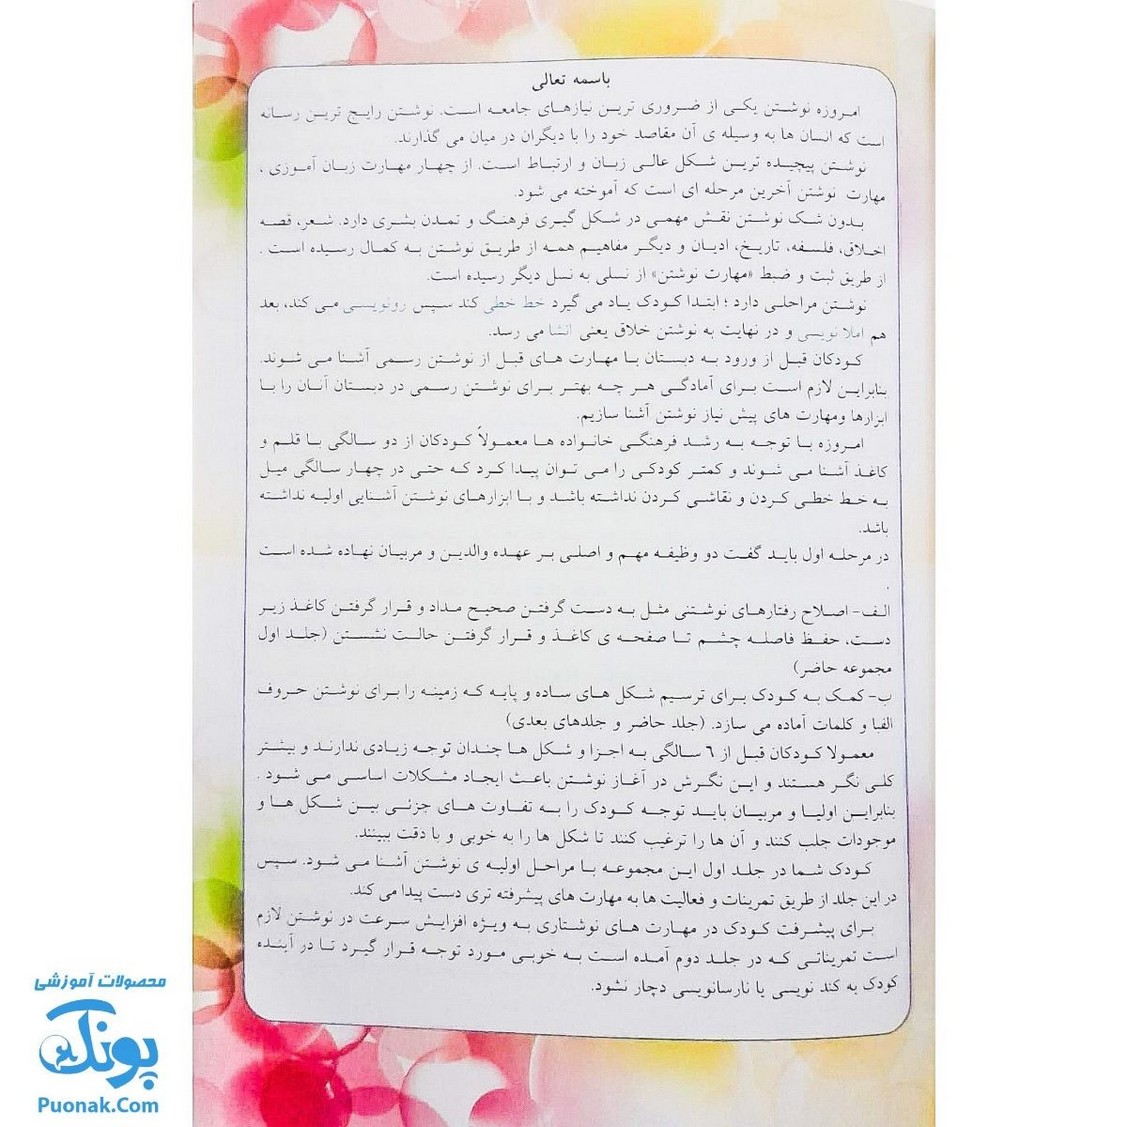 باسمه تعالی
امروزه نوشتن یکی از ضروری ترین نیازهای جامعه است. نوشتن رایج ترین رسانه
است که انسان ها به وسیله ی آن مقاصد خود را با دیگران در میان می گذارند.
نوشتن پیچیده ترین شکل عالی زبان و ارتباط است. از چهار مهارت زبان آموزی ،
مهارت نوشتن آخرین مرحله ای است که آموخته می شود.
بدون شک نوشتن نقش مهمی در شکل گیری فرهنگ و تمدن بشری دارد. شعر، قصه
اخلاق، فلسفه، تاریخ، ادیان و دیگر مفاهیم همه از طریق نوشتن به کمال رسیده است .
از طریق ثبت و ضبط «مهارت نوشتن» از نسلی به نسل دیگر رسیده است.
نوشتن مراحلی دارد ؛ ابتدا کودک یاد می گیرد خط خطی کند سپس رونویسی می کند، بعد
هم املا نویسی و در نهایت به نوشتن خلاق یعنی انشا می رسد.
کودکان قبل از ورود به دبستان با مهارت های قبل از نوشتن رسمی آشنا می شوند.
بنابراین لازم است برای آمادگی هر چه بهتر برای نوشتن رسمی در دبستان آنان را با
ابزارها ومهارت های پیش نیاز نوشتن آشنا سازیم.
امروزه با توجه به رشد فرهنگی خانواده ها معمولاً کودکان از دو سالگی با قلم و
کاغذ آشنا می شوند و کمتر کودکی را می توان پیدا کرد که حتی در چهار سالگی میل
به خط خطی کردن و نقاشی کردن نداشته باشد و با ابزارهای نوشتن آشنایی اولیه نداشته
باشد.
در مرحله اول باید گفت دو وظیفه مهم و اصلی بر عهده والدین و مربیان نهاده شده است
.
الف- اصلاح رفتارهای نوشتنی مثل به دست گرفتن صحیح مداد و قرار گرفتن کاغذ زیر
دست، حفظ فاصله چشم تا صفحه ی کاغذ و قرار گرفتن حالت نشستن (جلد اول
مجموعه حاضر)
ب- کمک به کودک برای ترسیم شکل های ساده و پایه که زمینه را برای نوشتن حروف
الفبا و کلمات آماده می سازد. (جلد حاضر و جلدهای بعدی)
معمولا کودکان قبل از ۶ سالگی به اجزا و شکل ها چندان توجه زیادی ندارند و بیشتر
کلی نگر هستند و این نگرش در آغاز نوشتن باعث ایجاد مشکلات اساسی می شود .
بنابراین اولیا و مربیان باید توجه کودک را به تفاوت های جزئی بین شکل ها و
موجودات جلب کنند و آن ها را ترغیب کنند تا شکل ها را به خوبی و با دقت ببینند.
کودک شما در جلد اول این مجموعه با مراحل اولیه ی نوشتن آشنا می شود. سپس
در این جلد از طریق تمرینات و فعالیت ها به مهارت های پیشرفته تری دست پیدا می کند.
برای پیشرفت کودک در مهارت های نوشتاری به ویژه افزایش سرعت در نوشتن لازم
است تمریناتی که در جلد دوم آمده است به خوبی مورد توجه قرار گیرد تا در آینده
کودک به کند نویسی یا نارسانویسی دچار نشود.
محصولات آموزشی
پونک
Puonak.Com